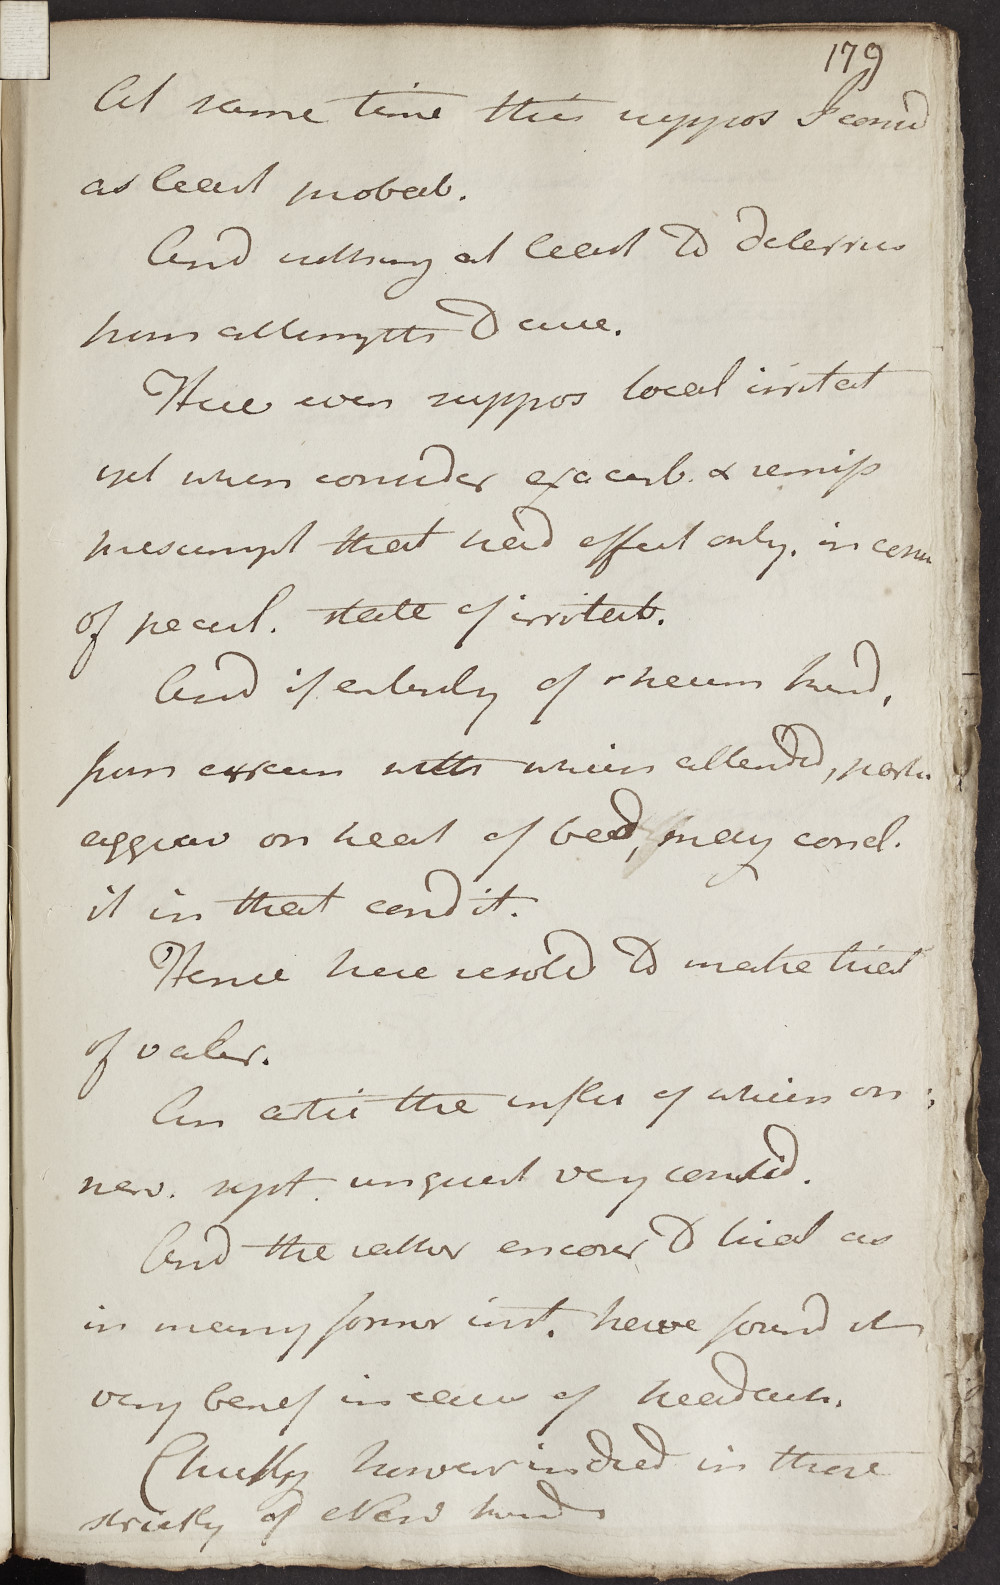 179
At same time this suppos I consid
as least probab.
And nothing at least to deter us
from attempts to cure.
Here even suppos local irritat
yet when consider exacerb. & remiss
presumpt that had effect only. in conseq
of pecul. state of irritab.
And if entirely of rheum kind,
from with which attended,
aggrav on heat of bed, may concl.
it in that condit.
Hence here resolvd to make trial
of valer.
An artic the influ of which on
nerv. syst unquest very consid.
And the rather encour to trial as
in many former inst. have found it
very benef in cases of headach.
Chiefly however indeed in those
strictly of Nerv kind